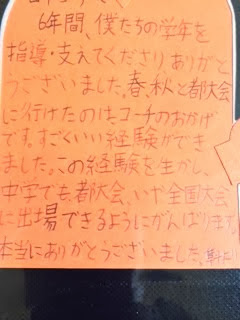 6年間、僕たちの学年を
指導・支えてくださりありが
とうございました。春、秋と都大会
に行けたのはコーチのおかげ
です。すごくいい経験ができ
ました。この経験を生かし、
中学でも、都大会、いや全国大会
に出場できるようにがんばります。
本当にありがとうございました。